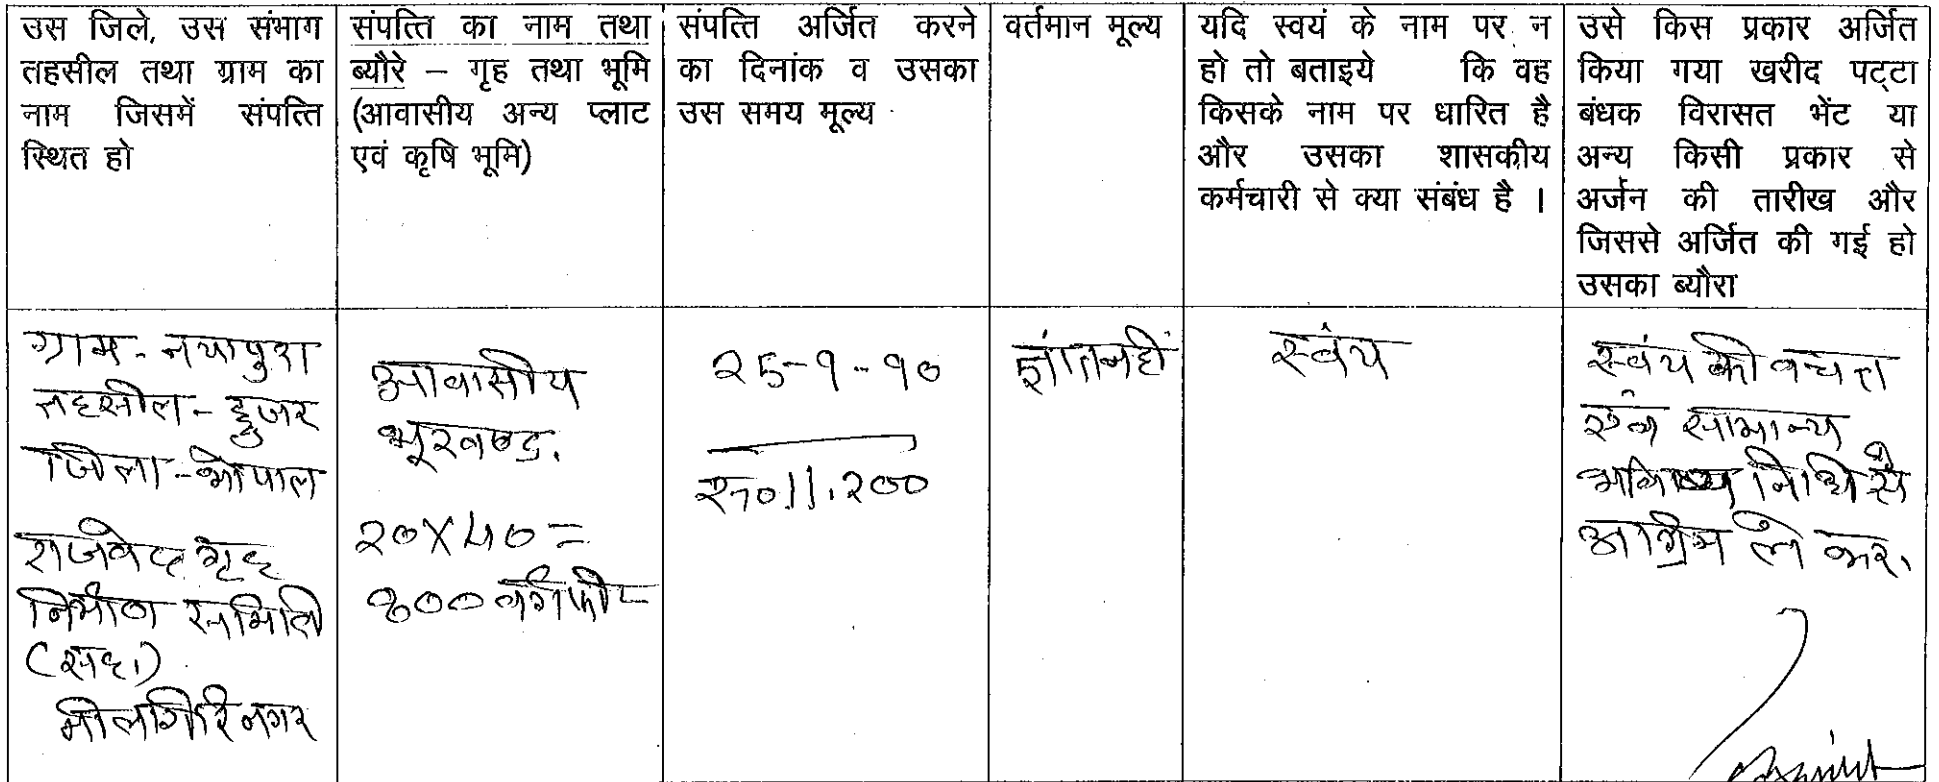 उस जिले, उस संभाग
तहसील तथा ग्राम का
नाम जिसमें संपत्ति
स्थित हो
संपत्ति का नाम तथा
ब्यौरे – गृह तथा भूमि
(आवासीय अन्य प्लाट
एवं कृषि भूमि)
संपत्ति अर्जित करने
का दिनांक व उसका
उस समय मूल्य
वर्तमान मूल्य
यदि स्वयं के नाम पर न
हो तो बताइये कि वह
किसके नाम पर धारित है
और उसका शासकीय
कर्मचारी से क्या संबंध है ।
उसे किस प्रकार अर्जित
किया गया खरीद पट्टा
बंधक विरासत भेंट या
अन्य किसी प्रकार से
अर्जन की तारीख और
जिससे अर्जित की गई हो
उसका ब्यौरा
ग्राम - नयापुरा
तहसील - हुजुर
जिला - भोपाल
राजवेद्य गृह
निर्माण समिति
(सह.)
नीलगिरि नगर
आवासीय
भूखण्ड.
20X40=
800 वर्गफीट
25-9-90
रू0 11.200
ज्ञात नहीं
स्वंय
स्वंय की बचत
एंव सामान्य
भविष्य निधि से
अग्रिम ले कर.